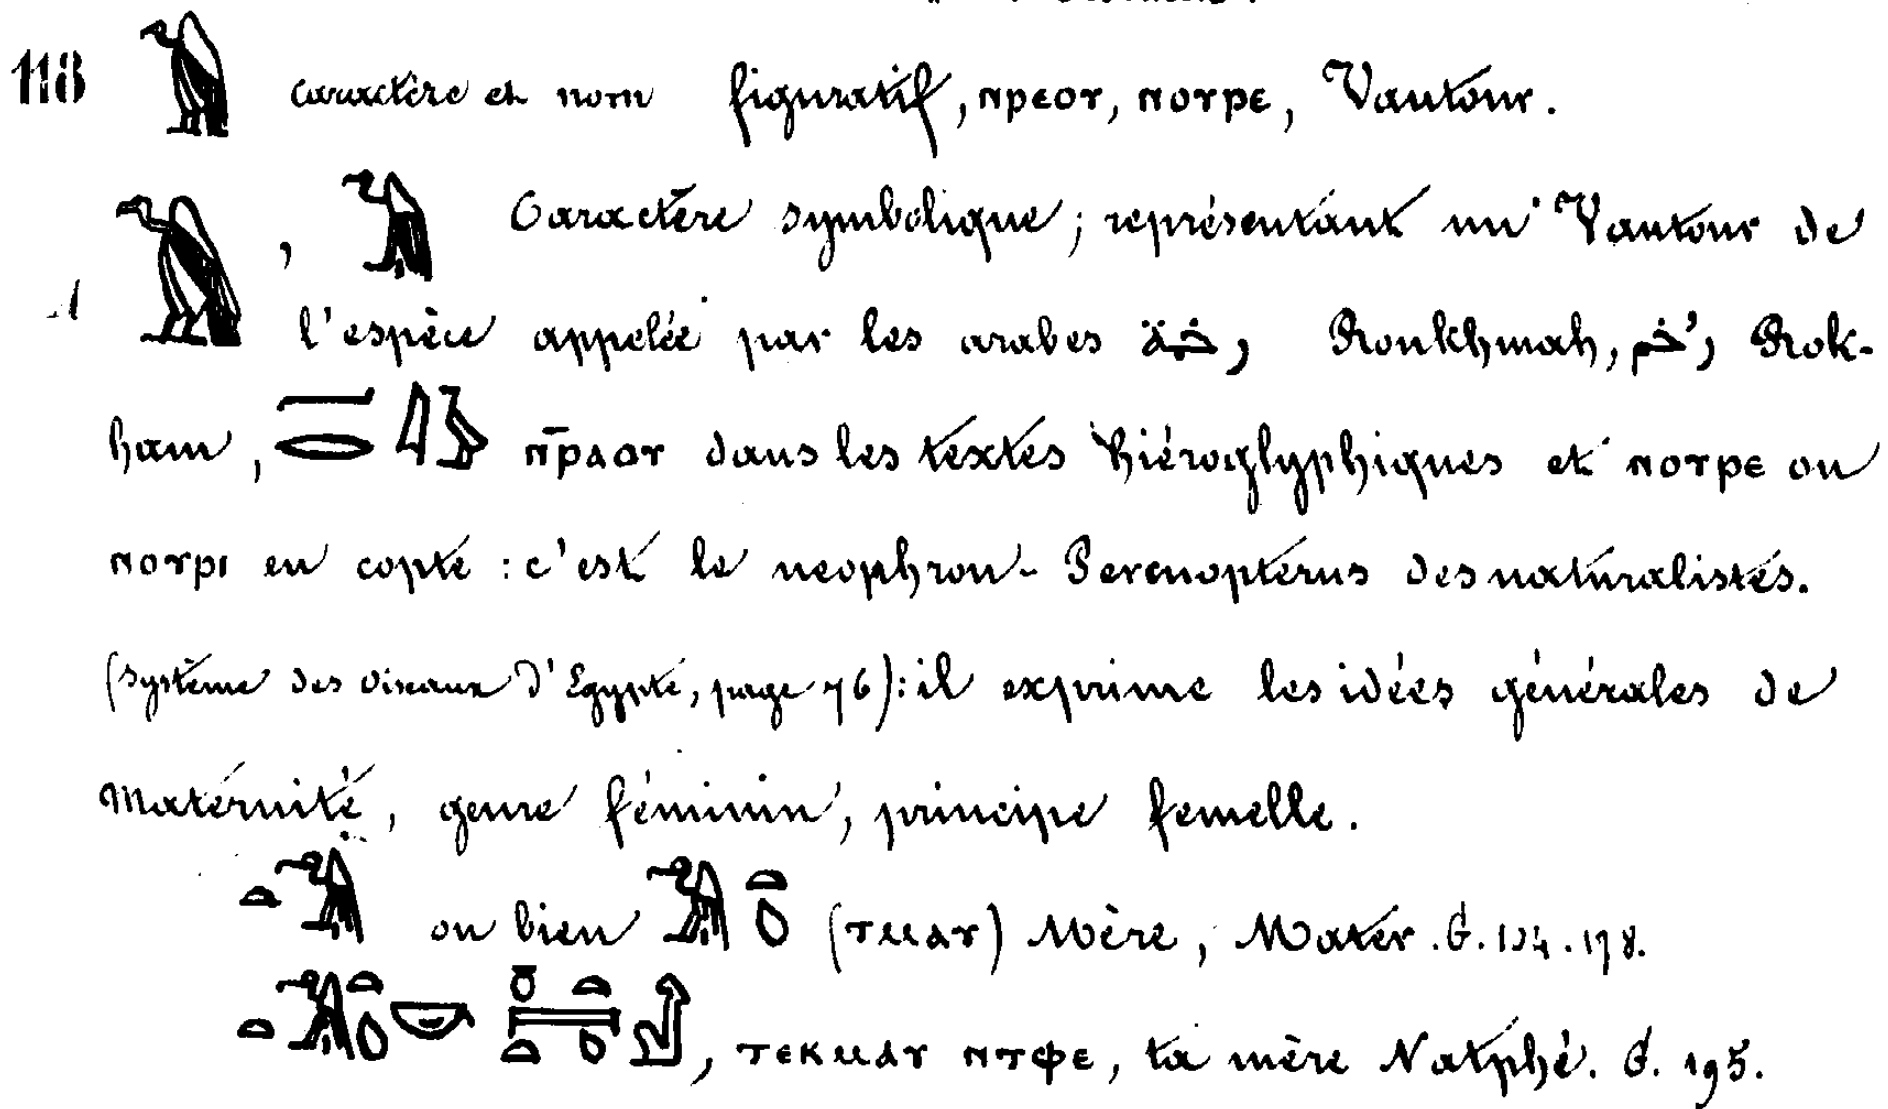 118 caractère et nom figuratif, ⲛⲣⲉⲟⲩ, ⲛⲟⲩⲣⲉ, Vautour.
, Caractère symbolique; représentant un Vautour de
l'espèce appelée par les arabes رخمة, Roukhmah, رخم, Rok-
ham, ⲛ̄ⲣⲁⲟⲩ dans les textes hiéroglyphiques et ⲛⲟⲩⲣⲉ ou
ⲛⲟⲩⲣⲓ en copte : c'est le neophron-Percnoptérus des naturalistes.
(Système des Oiseaux d'Egypte, page 76): il exprime les idées générales de
Maternité, genre féminin, principe femelle.
ou bien (ⲧⲙⲁⲩ) Mère, Mater. G. 104. 178.
, ⲧⲉⲕⲙⲁⲩ ⲛⲧⲫⲉ, ta mère Natphé. G. 195.